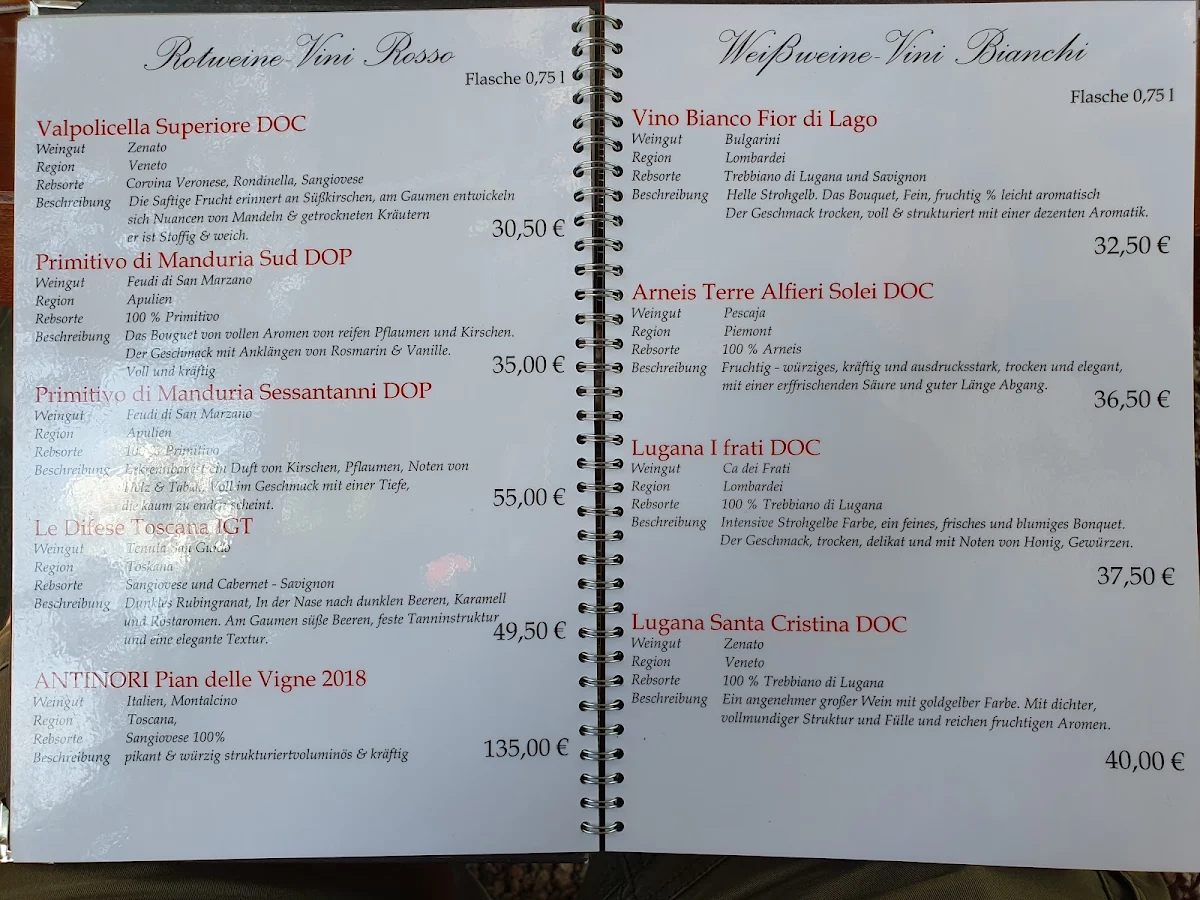 Rotweine-Vini Rosso
Flasche 0,75 l
Valpolicella Superiore DOC
Weingut Zenato
Region Veneto
Rebsorte Corvina Veronese, Rondinella, Sangiovese
Beschreibung Die Saftige Frucht erinnert an Süßkirschen, am Gaumen entwickeln
sich Nuancen von Mandeln & getrockneten Kräutern
er ist Stoffig & weich.
30,50 €
Primitivo di Manduria Sud DOP
Weingut Feudi di San Marzano
Region Apulien
Rebsorte 100 % Primitivo
Beschreibung Das Bouguet von vollen Aromen von reifen Pflaumen und Kirschen.
Der Geschmack mit Anklängen von Rosmarin & Vanille.
Voll und kräftig
35,00 €
Primitivo di Manduria Sessantanni DOP
Weingut Feudi di San Marzano
Region Apulien
Rebsorte Primitivo
Beschreibung Erkennbar ist ein Duft von Kirschen, Pflaumen, Noten von
Holz & Tabak. Voll im Geschmack mit einer Tiefe,
die kaum zu enden scheint.
55,00 €
Le Difese Toscana IGT
Weingut Tenuta San Guido
Region Toskana
Rebsorte Sangiovese und Cabernet - Savignon
Beschreibung Dunkles Rubingranat, In der Nase nach dunklen Beeren, Karamell
und Röstaromen. Am Gaumen süße Beeren, feste Tanninstruktur
und eine elegante Textur.
49,50 €
ANTINORI Pian delle Vigne 2018
Weingut Italien, Montalcino
Region Toscana,
Rebsorte Sangiovese 100%
Beschreibung pikant & würzig strukturiertvoluminös & kräftig
135,00 €
Weißweine-Vini Bianchi
Flasche 0,75 l
Vino Bianco Fior di Lago
Weingut Bulgarini
Region Lombardei
Rebsorte Trebbiano di Lugana und Savignon
Beschreibung Helle Strohgelb. Das Bouquet, Fein, fruchtig % leicht aromatisch
Der Geschmack trocken, voll & strukturiert mit einer dezenten Aromatik.
32,50 €
Arneis Terre Alfieri Solei DOC
Weingut Pescaja
Region Piemont
Rebsorte 100 % Arneis
Beschreibung Fruchtig - würziges, kräftig und ausdrucksstark, trocken und elegant,
mit einer erffrischenden Säure und guter Länge Abgang.
36,50 €
Lugana I frati DOC
Weingut Ca dei Frati
Region Lombardei
Rebsorte 100 % Trebbiano di Lugana
Beschreibung Intensive Strohgelbe Farbe, ein feines, frisches und blumiges Bonquet.
Der Geschmack, trocken, delikat und mit Noten von Honig, Gewürzen.
37,50 €
Lugana Santa Cristina DOC
Weingut Zenato
Region Veneto
Rebsorte 100 % Trebbiano di Lugana
Beschreibung Ein angenehmer großer Wein mit goldgelber Farbe. Mit dichter,
vollmundiger Struktur und Fülle und reichen fruchtigen Aromen.
40,00 €